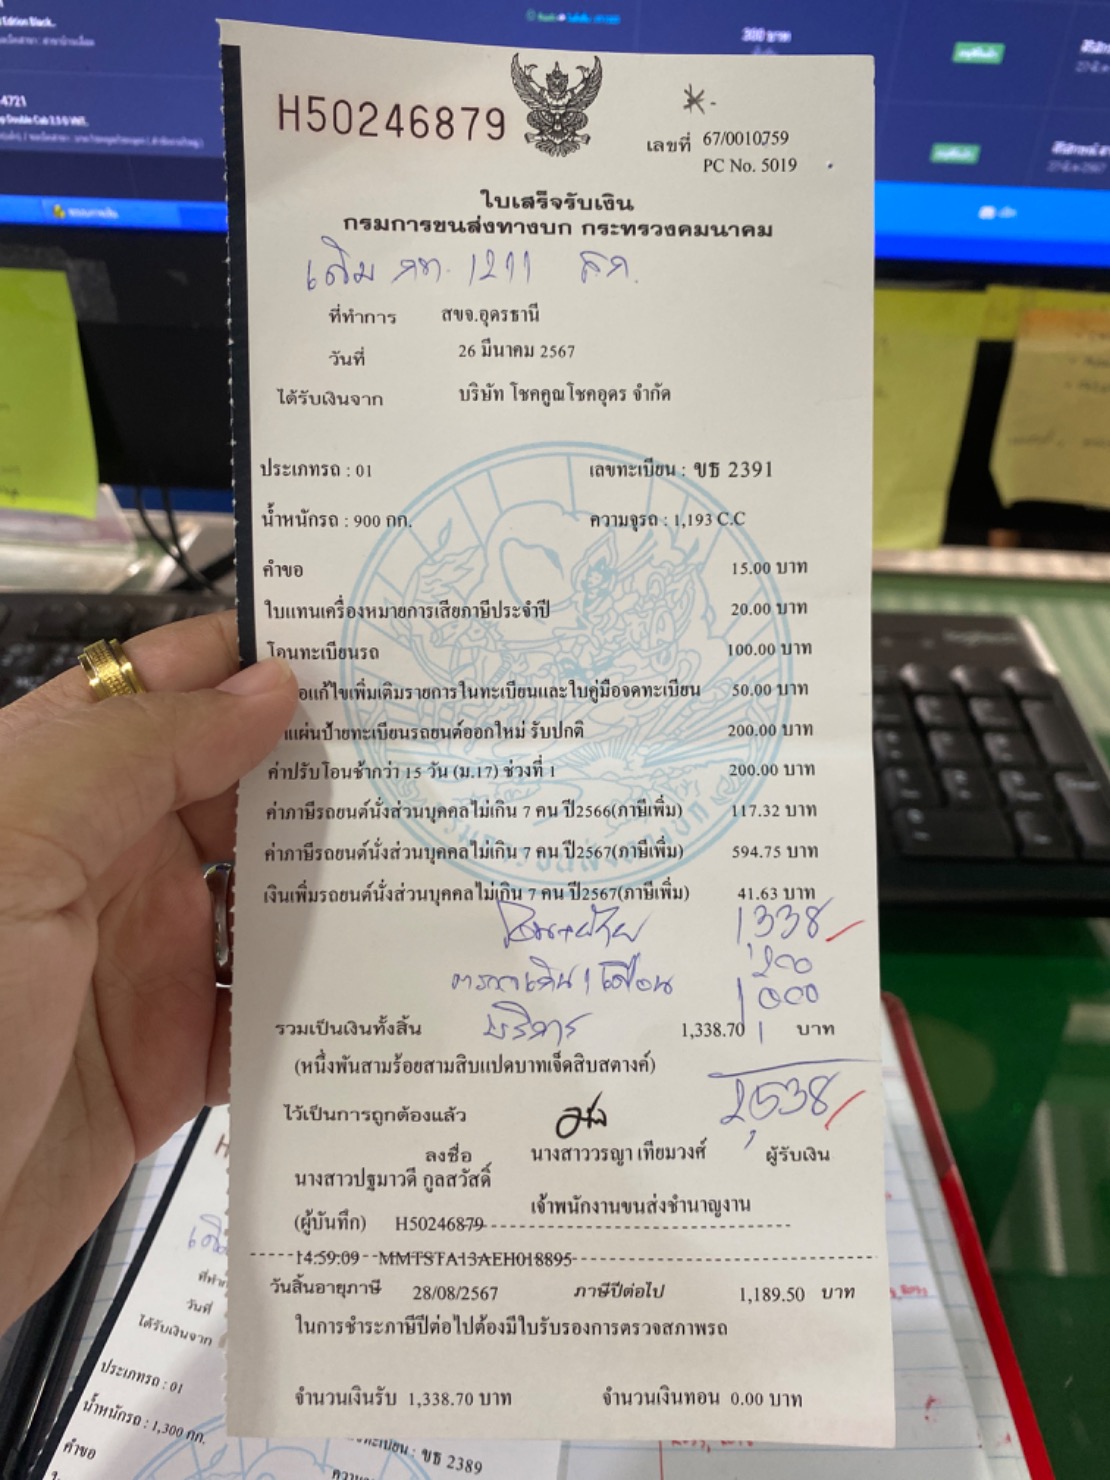 H50246879
เลขที่ 67/0010759
PC No. 5019
ใบเสร็จรับเงิน
กรมการขนส่งทางบก กระทรวงคมนาคม
เดิม กท. 1211 สก.
ที่ทำการ สขจ.อุดรธานี
วันที่ 26 มีนาคม 2567
ได้รับเงินจาก บริษัท โชคคูณโชคอุดร จำกัด
ประเภทรถ : 01 เลขทะเบียน : ขธ 2391
น้ำหนักรถ : 900 กก. ความจุรถ : 1,193 C.C
คำขอ 15.00 บาท
ใบแทนเครื่องหมายการเสียภาษีประจำปี 20.00 บาท
โอนทะเบียนรถ 100.00 บาท
อแก้ไขเพิ่มเติมรายการในทะเบียนและใบคู่มือจดทะเบียน 50.00 บาท
แผ่นป้ายทะเบียนรถยนต์ออกใหม่ รับปกติ 200.00 บาท
ค่าปรับโอนช้ากว่า 15 วัน (ม.17) ช่วงที่ 1 200.00 บาท
ค่าภาษีรถยนต์นั่งส่วนบุคคลไม่เกิน 7 คน ปี2566(ภาษีเพิ่ม) 117.32 บาท
ค่าภาษีรถยนต์นั่งส่วนบุคคลไม่เกิน 7 คน ปี2567(ภาษีเพิ่ม) 594.75 บาท
เงินเพิ่มรถยนต์นั่งส่วนบุคคลไม่เกิน 7 คน ปี2567(ภาษีเพิ่ม) 41.63 บาท
1,338
200
1 เดือน 1,000
บริการ
รวมเป็นเงินทั้งสิ้น 1,338.70 บาท
(หนึ่งพันสามร้อยสามสิบแปดบาทเจ็ดสิบสตางค์)
2,538
ไว้เป็นการถูกต้องแล้ว
ลงชื่อ นางสาววรญา เทียมวงศ์ ผู้รับเงิน
นางสาวปฐมาวดี กูลสวัสดิ์
เจ้าพนักงานขนส่งชำนาญงาน
(ผู้บันทึก) H50246879
14:59:09 MMTSTA13AEH018895
วันสิ้นอายุภาษี 28/08/2567 ภาษีปีต่อไป 1,189.50 บาท
ในการชำระภาษีปีต่อไปต้องมีใบรับรองการตรวจสภาพรถ
จำนวนเงินรับ 1,338.70 บาท จำนวนเงินทอน 0.00 บาท
ได้รับเงินจาก
ประเภทรถ : 01
น้ำหนักรถ : 1,300 กก.
ขธ 2389
คำขอ